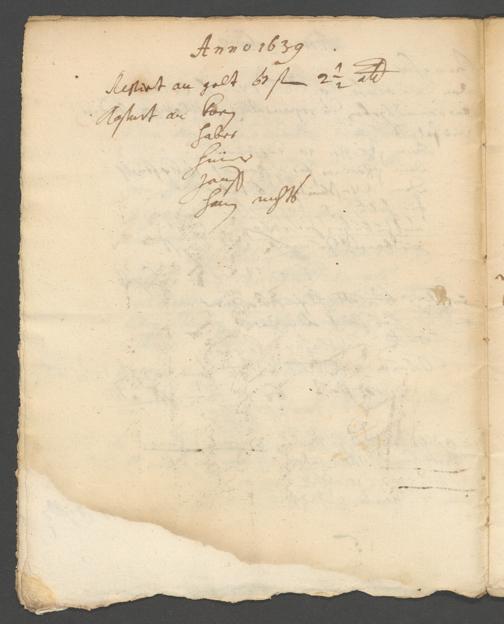 Anno 1639
Restirt an gelt 61 fl 2 1/2 alb
Restirt an korn
haber
hüner
han nichts